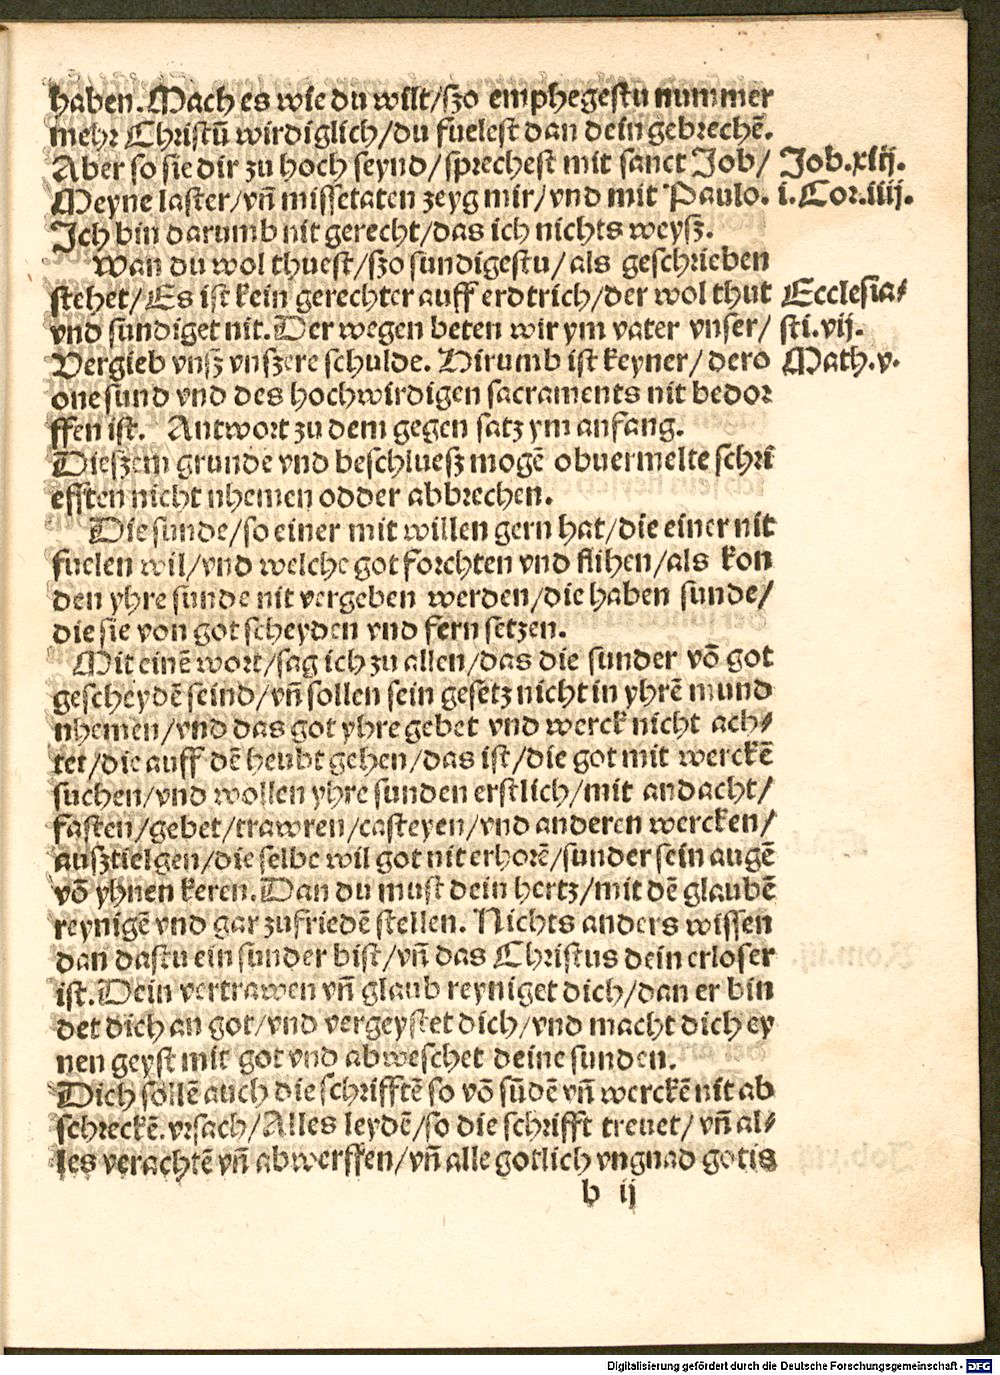 haben. Mach es wie du wilt/szo emphegestu nummer
mehr Christū wirdiglich/du fuelest dan dein gebrechē.
Aber so sie dir zu hoch seynd/sprechest mit sanct Job/ Job.xiij.
Meyne laster/vñ missetaten zeyg mir/vnd mit Paulo. i.Cor.iiij.
Ich bin darumb nit gerecht/das ich nichts weysz.
Wan du wol thuest/szo sundigestu/als geschrieben
stehet/Es ist kein gerechter auff erdtrich/der wol thut Ecclesia-
vnd sundiget nit. Der wegen beten wir ym vater vnser/ sti.vij.
Vergieb vnsz vnszere schulde. Hirumb ist keyner/dero Math.v.
one sund vnd des hochwirdigen sacraments nit bedor
ffen ist. Antwort zu dem gegen satz ym anfang.
Dieszem grunde vnd beschluesz mogē obuermelte schri
efften nicht nhemen odder abbrechen.
Die sunde/so einer mit willen gern hat/die einer nit
fuelen wil/vnd welche got forchten vnd flihen/als kon
den yhre sunde nit vergeben werden/die haben sunde/
die sie von got scheyden vnd fern setzen.
Mit einē wort/sag ich zu allen/das die sunder vō got
gescheydē seind/vñ sollen sein gesetz nicht in yhrē mund
nhemen/vnd das got yhre gebet vnd werck nicht ach-
tet/die auff dē heubt gehen/das ist/die got mit werckē
suchen/vnd wollen yhre sunden erstlich/mit andacht/
fasten/gebet/trawren/casteyen/vnd anderen wercken/
ausztielgen/die selbe wil got nit erhorē/sunder sein augē
vō yhnen keren. Dan du must dein hertz/mit dē glaubē
reynigē vnd gar zufriedē stellen. Nichts anders wissen
dan dastu ein sunder bist/vñ das Christus dein erloser
ist. Dein vertrawen vñ glaub reyniget dich/dan er bin
det dich an got/vnd vergeystet dich/vnd macht dich ey
nen geyst mit got vnd abweschet deine sunden.
Dich sollē auch die schrifftē so vō sūdē vñ werckē nit ab
schreckē. vrsach/Alles leydē/so die schrifft trewet/vñ al-
les verachtē vñ abwerffen/vñ alle gotlich vngnad gotis
b ij
Digitalisierung gefördert durch die Deutsche Forschungsgemeinschaft - DFG